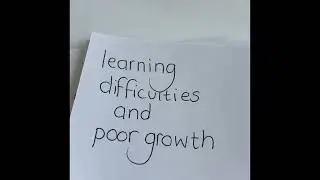 learning
difficulties
and
poor growth